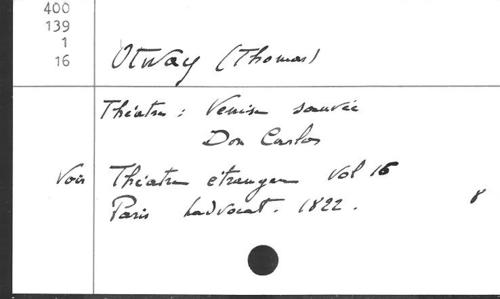 400
139
1
16
Otway (Thomas)
Théâtre : Venise sauvée
Don Carlos
Voir Théâtre étranger Vol 16
Paris Ladvocat. 1822. 8